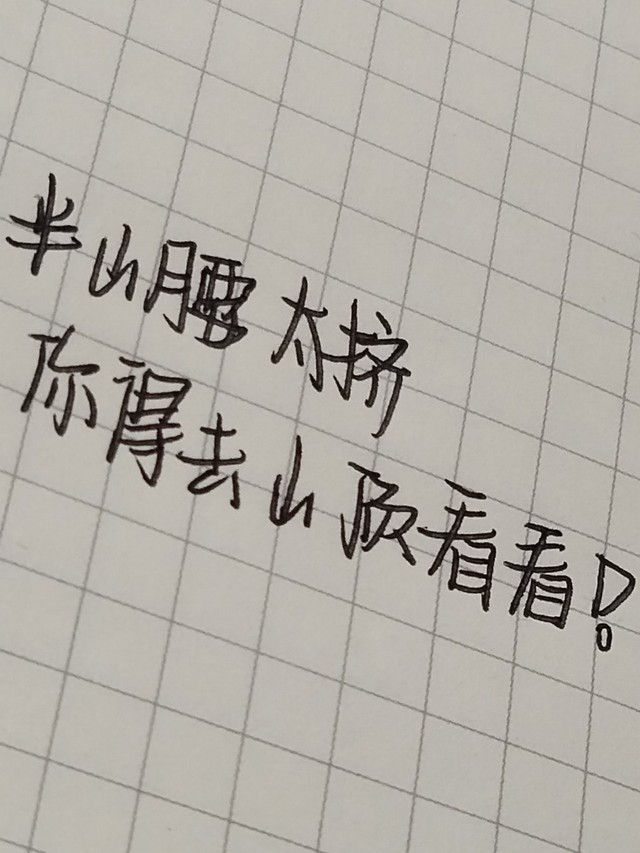 半山腰太挤
你得去山顶看看!